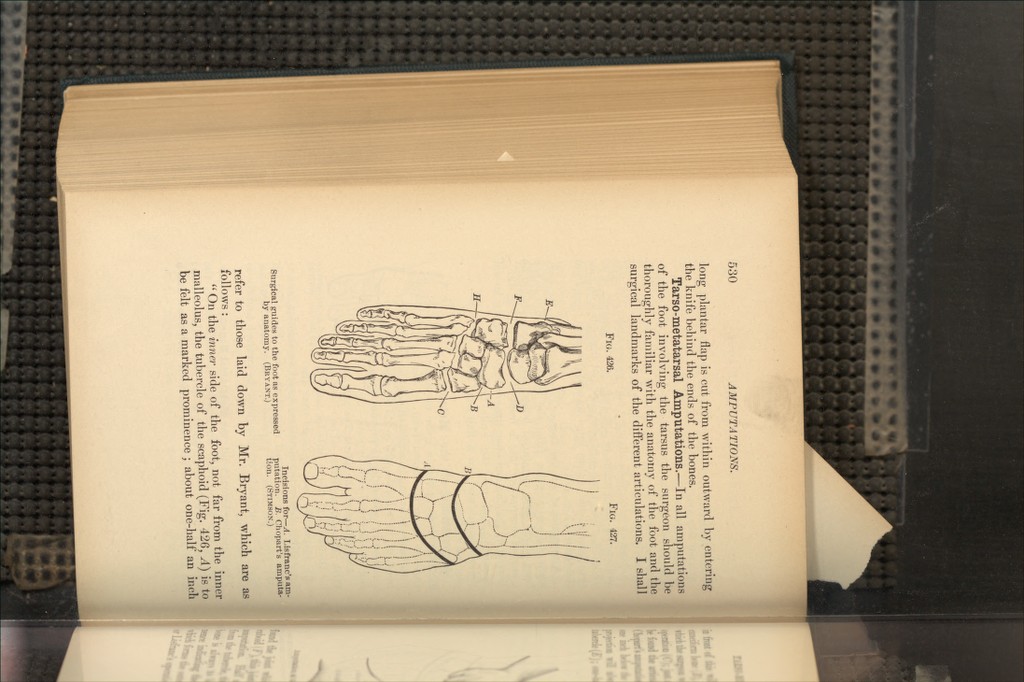 530 AMPUTATIONS.
long plantar flap is cut from within outward by entering
the knife behind the ends of the bones.
Tarso-metatarsal Amputations.—In all amputations
of the foot involving the tarsus the surgeon should be
thoroughly familiar with the anatomy of the foot and the
surgical landmarks of the different articulations. I shall
FIG. 426.
E
F
H
D
A
B
C
Surgical guides to the foot as expressed
by anatomy. (BRYANT.)
FIG. 427.
B
A
Incisions for—A. Lisfranc's am-
putation. B. Chopart's amputa-
tion. (STIMSON.)
refer to those laid down by Mr. Bryant, which are as
follows:
"On the inner side of the foot, not far from the inner
malleolus, the tubercle of the scaphoid (Fig. 426, A) is to
be felt as a marked prominence; about one-half an inch